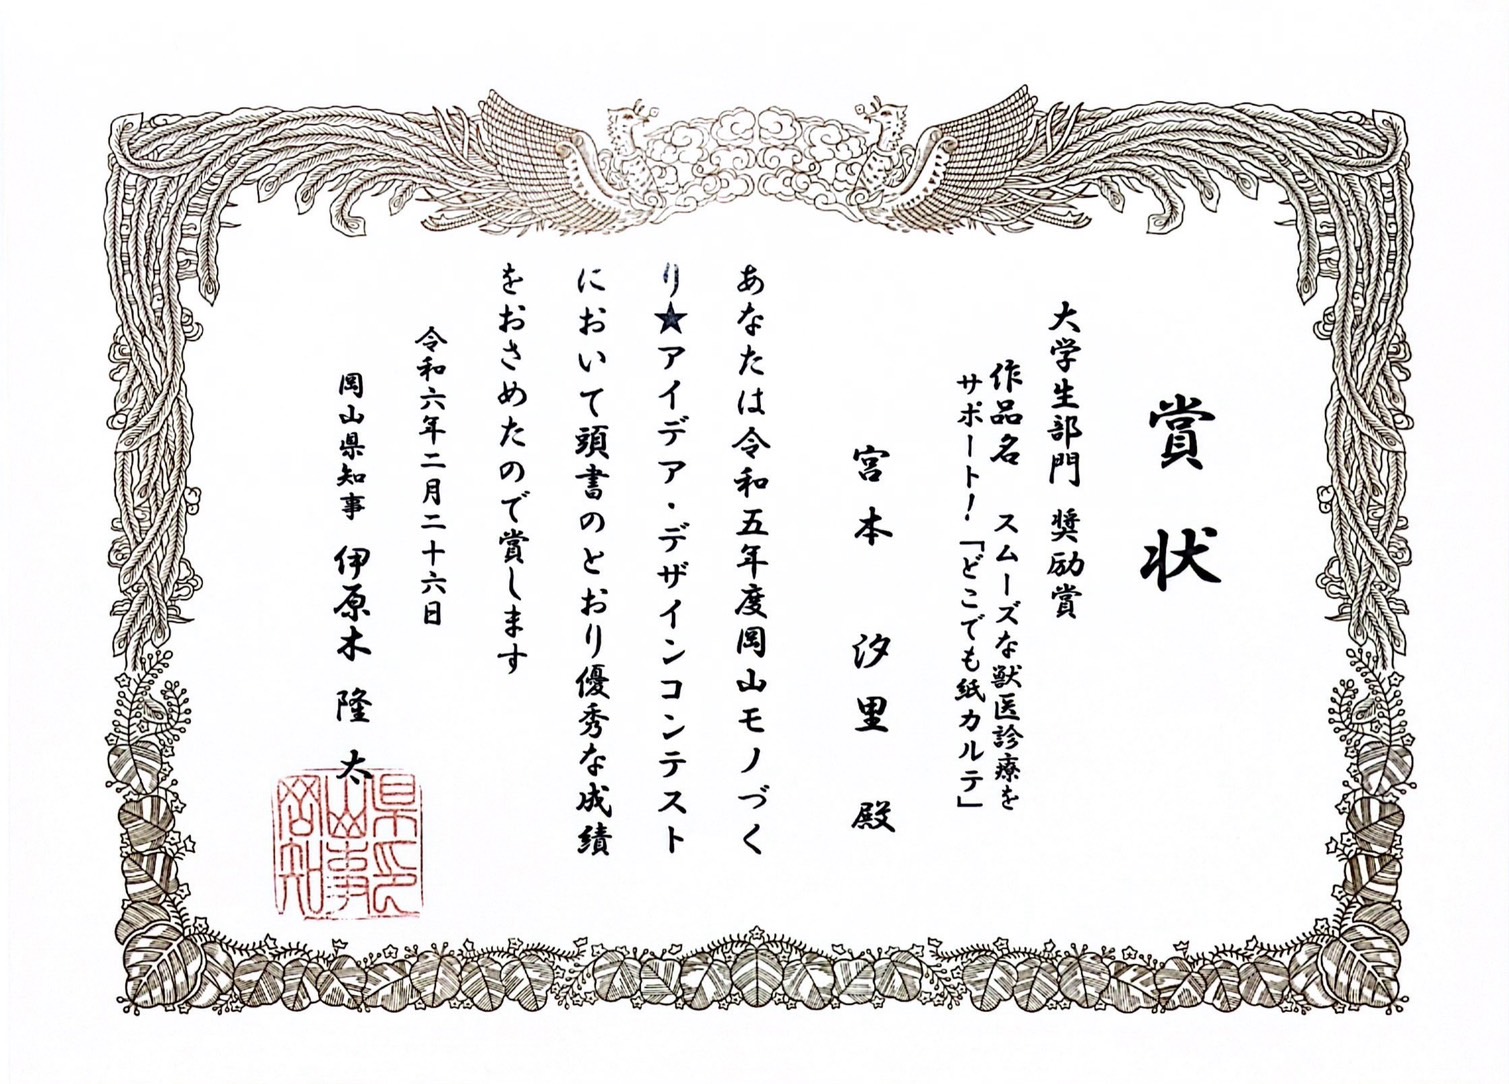 賞状
大学生部門 奨励賞
作品名 スムーズな獣医診療を
サポート！「どこでも紙カルテ」
宮本 汐里 殿
あなたは令和五年度岡山モノづく
り★アイデア・デザインコンテスト
において頭書のとおり優秀な成績
をおさめたので賞します
令和六年二月二十六日
岡山県知事 伊原木 隆太
岡山県知事印